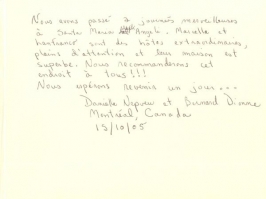 Nous avons passé 2 journées merveilleuses
à Santa Maria Angeli. Marielle et
Gianfranco sont des hôtes extraordinaires,
pleins d'attention et leur maison est
superbe. Nous recommanderons cet
endroit à tous!!!
Nous espérons revenir un jour...
Danielle Neveu et Bernard Dionne
Montréal, Canada
13/10/05